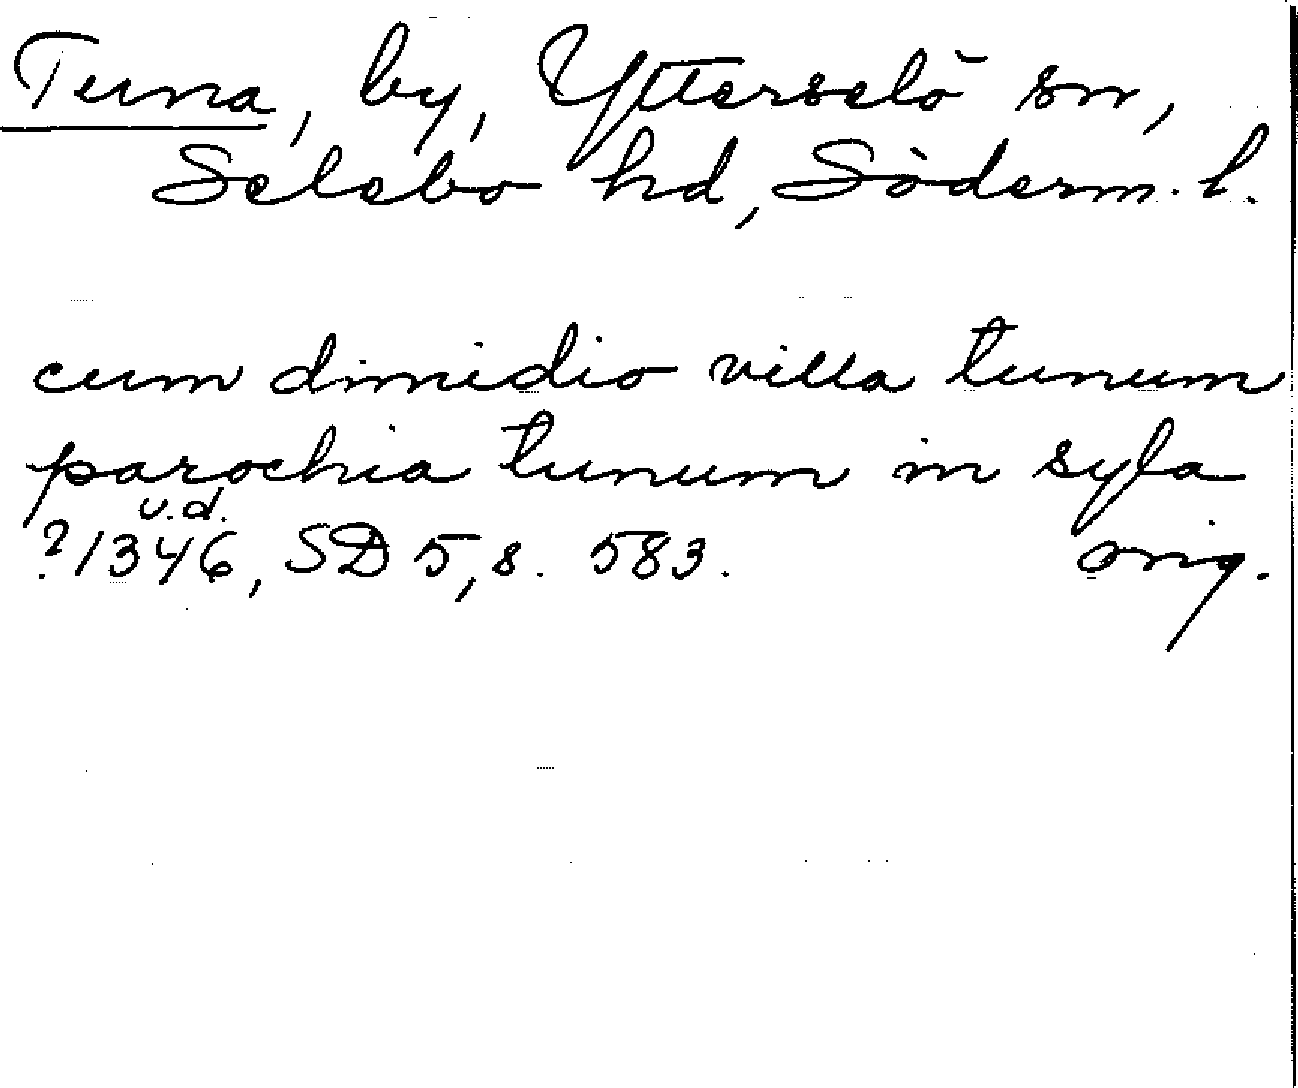 Tuna, by, Ytterselö sn,
Selebo hd, Söderm. l.
cum dimidio villa tunum
parochia tunum in syla
u.d.
?1346, SD 5, s. 583. orig.